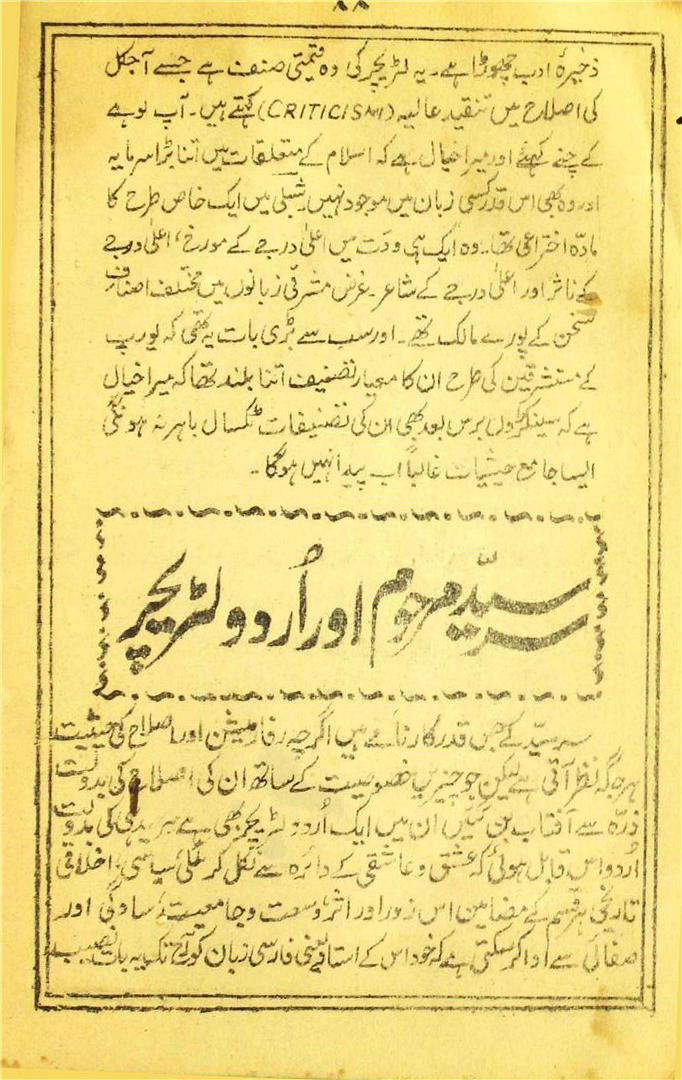 ۸۸
ذخیرۂ ادب چھوڑا ہے۔ یہ لٹریچر کی وہ قیمتی صنف ہے جسے آجکل
کی اصلاح میں تنقید عالیہ (CRITICISM) کہتے ہیں۔ آپ لوہے
کے چنے کہئے اور میرا خیال ہے کہ اسلام کے متعلقات میں اتنا بڑا سرمایہ
اور وہ بھی اس قدر کسی زبان میں موجود نہیں۔ شبلی میں ایک خاص طرح کا
مادّہ اختراعی تھا۔ وہ ایک ہی وقت میں اعلیٰ درجے کے مورخ، اعلیٰ درجے
کے ناثر اور اعلیٰ درجے کے شاعر۔ غرض مشرقی زبانوں میں مختلف اصناف
سخن کے پورے مالک تھے۔ اور سب سے بڑی بات یہ تھی کہ یورپ
کے مستشرقین کی طرح ان کا معیار تصنیف اتنا بلند تھا کہ میرا خیال
ہے کہ سینکڑوں برس بعد بھی ان کی تصنیفات ٹکسال باہر نہ ہونگی
ایسا جامع حیثیات غالباً اب پیدا نہیں ہوگا۔
سرسیّد مرحوم اور اُردو لٹریچر
سرسیّد کے جس قدر کارنامے ہیں اگرچہ رفارمیشن اور اصلاح کی حیثیت
ہر جگہ نظر آتی ہے لیکن جو چیزیں خصوصیت کے ساتھ ان کی اصلاح کی بدولت
ذرّہ سے آفتاب بن گئیں ان میں ایک اُردو لٹریچر بھی ہے سرسید ہی کی بدولت
اُردو اس قابل ہوئی کہ عشق و عاشقی کے دائرہ سے نکل کر ملکی، سیاسی، اخلاقی
تاریخی ہر قسم کے مضامین اس زور اور اثر، وسعت و جامعیت، سادگی اور
صفائی سے ادا کر سکتی ہے کہ خود اس کے استاد یعنی فارسی زبان کو آج تک یہ بات نصیب